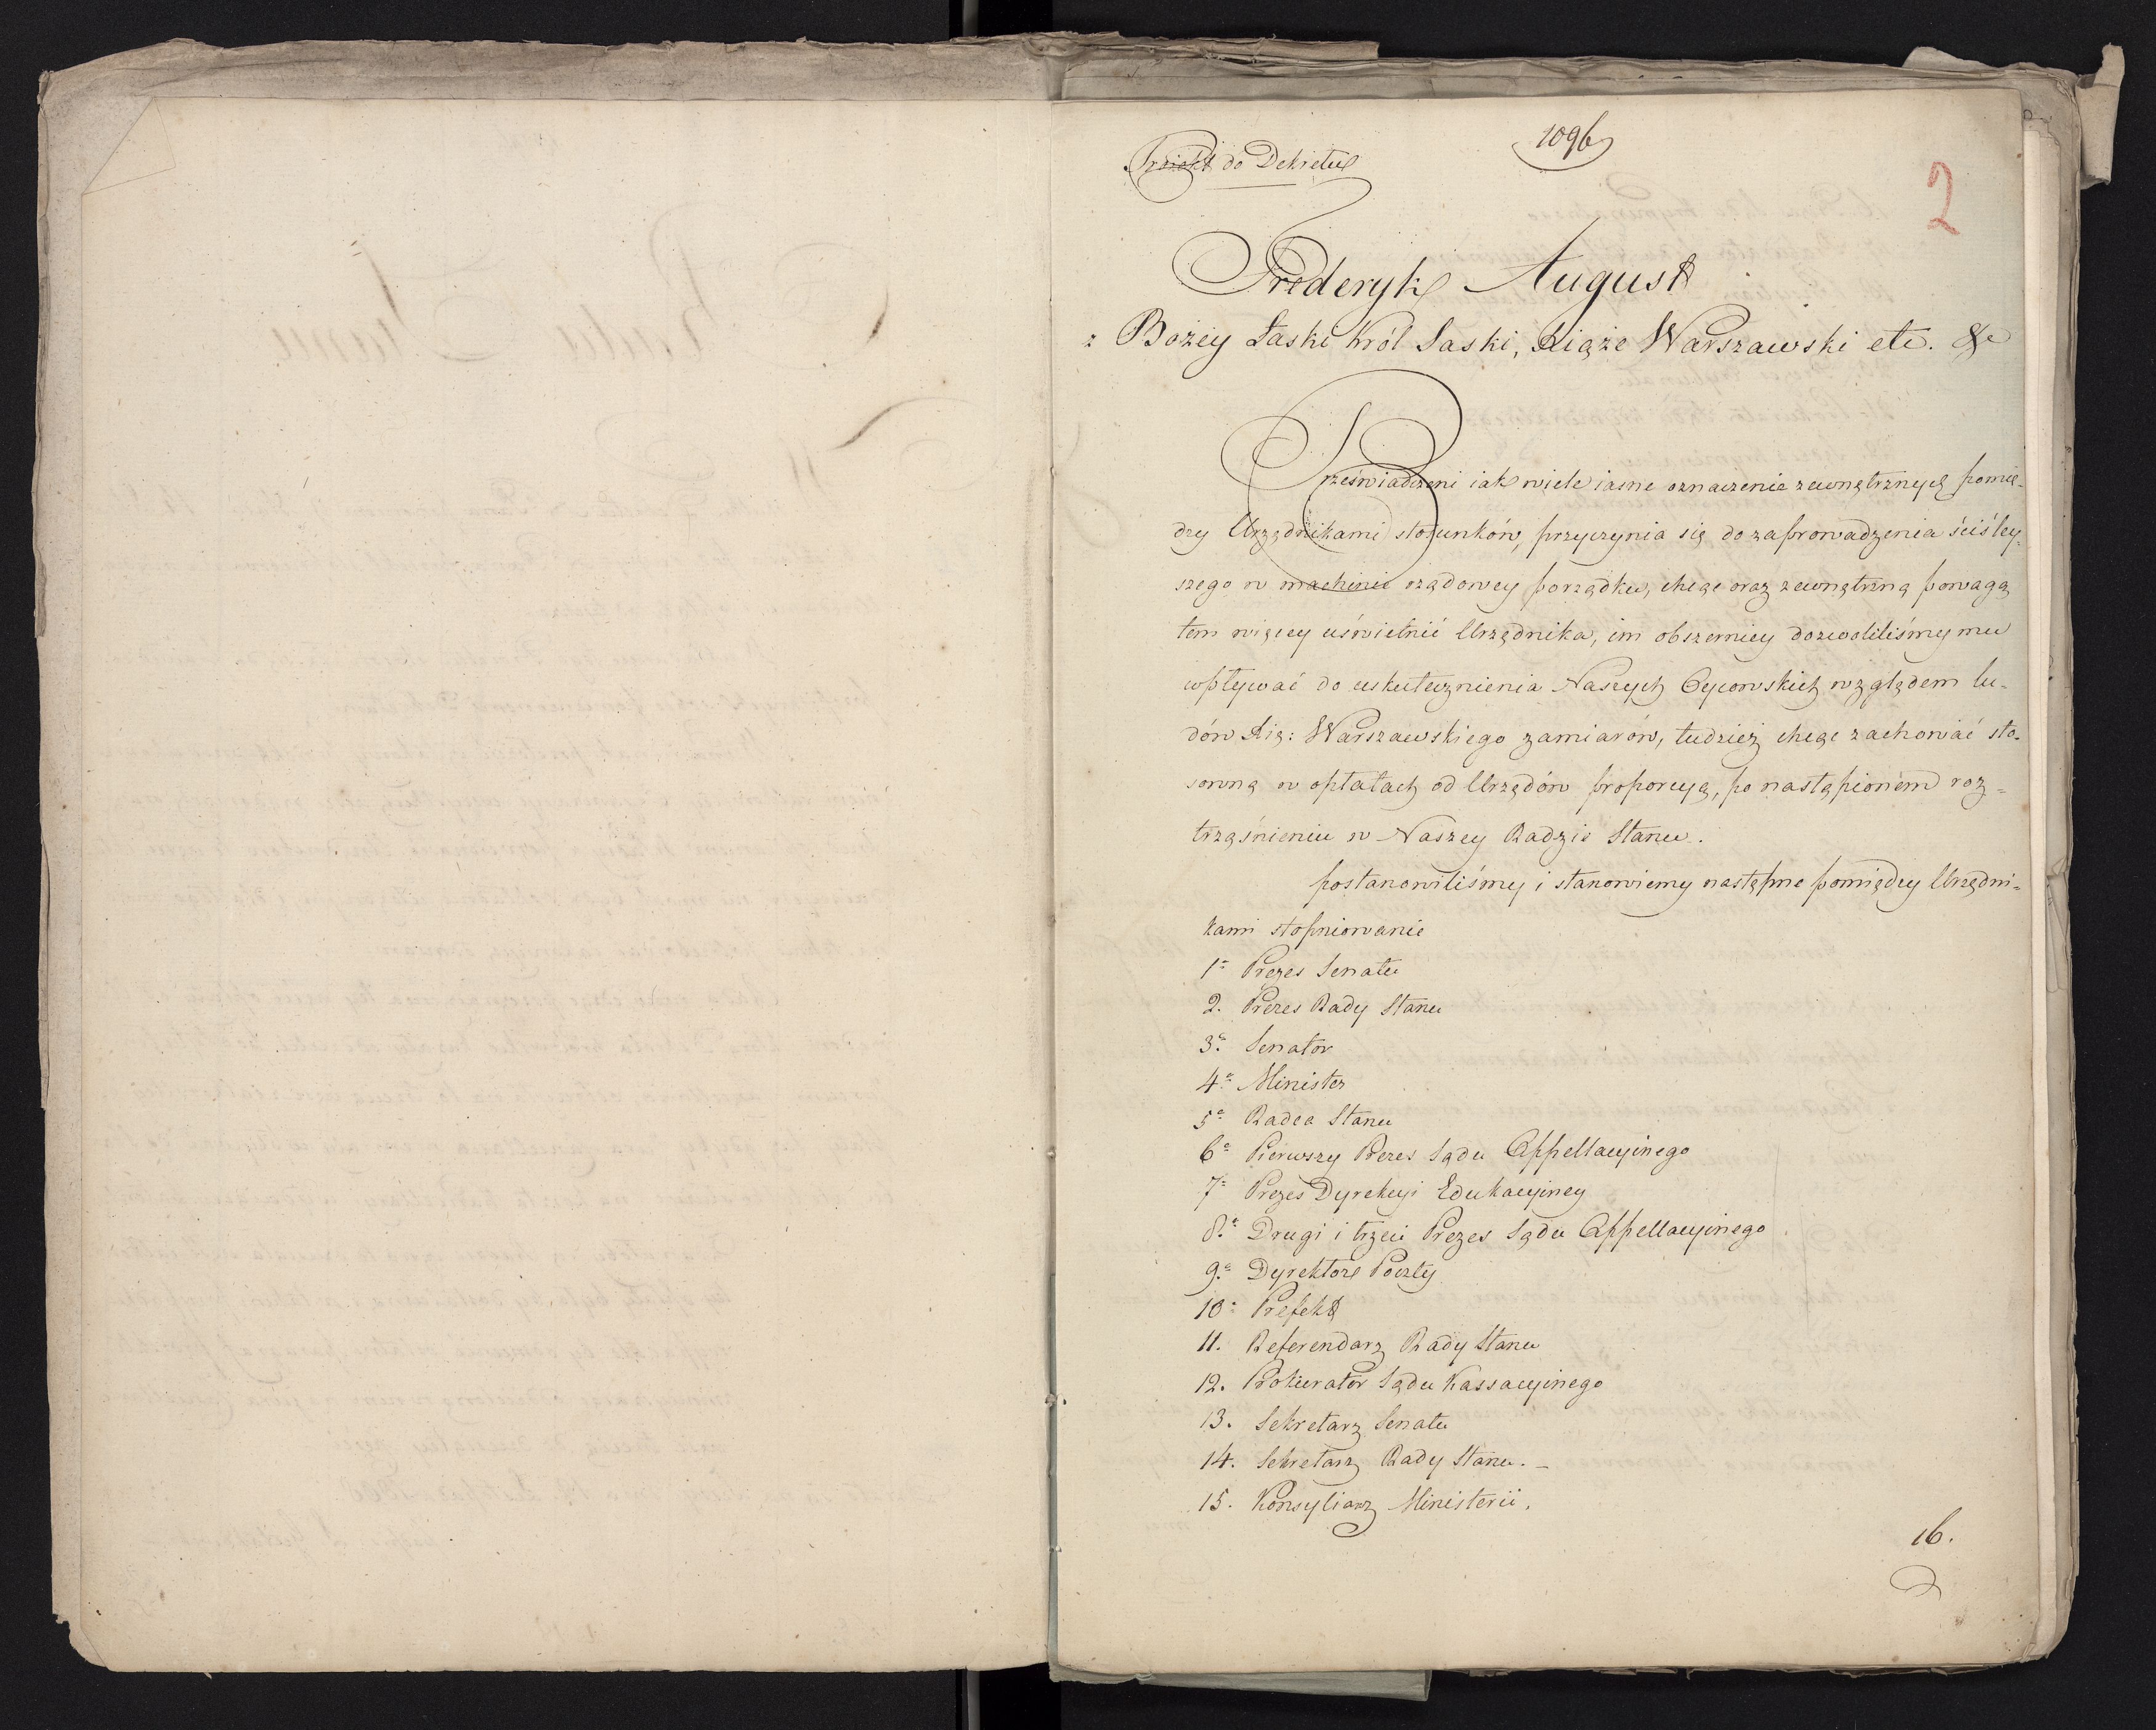 1096
Projekt do Dekretu
2
Frederyk August
z Bożey Łaski Król Saski, Xiąże Warszawski etc. &c
Przeświadczeni iak wiele iasne oznaczenie zewnętrznych pomię-
dzy Urzędnikami stosunków, przyczynia się do zaprowadzenia ściśley-
szego w machinie rządowey porządku, chcąc oraz zewnętrzną powagą
tem więcey uświetnić Urzędnika, im obszerniey dozwoliliśmy mu
wpływać do uskutecznienia Naszych Oycowskich względem lu-
dów Xię: Warszawskiego zamiarów, tudzież chcąc zachować sto-
sowną w opłatach od Urzędów proporcyą, po nastąpionem roz=
trząśnieniu w Naszey Radzie Stanu.
postanowiliśmy i stanowiemy następne pomiędzy Urzędni=
kami stopniowanie
1. Prezes Senatu
2. Prezes Rady Stanu
3. Senator
4. Minister
5. Radca Stanu
6. Pierwszy Prezes Sądu Appellacyinego
7. Prezes Dyrekcyi Edukacyiney
8. Drugi i trzeci Prezes Sądu Appellacyinego
9. Dyrektor Poczty
10. Prefekt
11. Referendarz Rady Stanu
12. Prokurator Sądu Kassacyinego
13. Sekretarz Senatu
14. Sekretarz Rady Stanu. –
15. Konsyliarz Ministerii.
16.